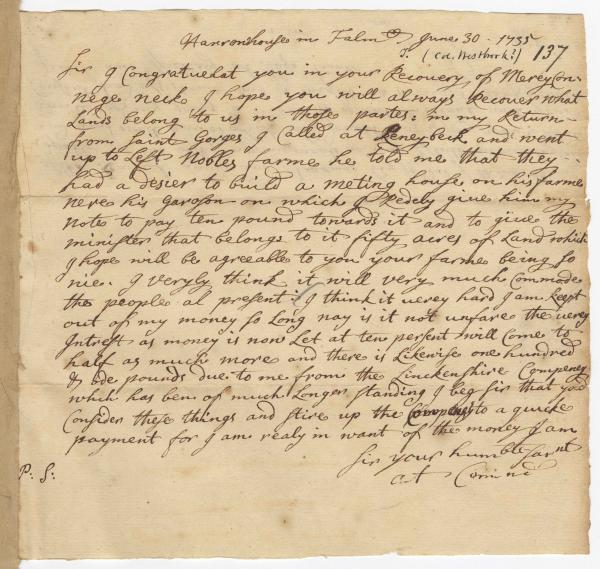 Harronhouse in Falmo June 30 - 1735
To (Col. Westbrook?) 137
Sir I Congratuelat you in your Recovery of Merey Con-
nege neck I hope you will always Recover what
Lands belong to us in those partes: in my Return
from Saint Gorges I Called at Keneybeck and went
up to Left Nobles farme he told me that they
had a desier to build a meting house on his farme
nere his Gareson on which I Redely give him my
note to pay ten pound towards it and to give the
minister that belongs to it fifty acres of Land which
I hope will be agreeable to you your farme being so
nie. I veryly think it will very much Commode
the people al present: I think it verey hard I am kept
out of my money so Long nay is it not unfare the verey
Intrest as money is now Let at ten persent will Come to
half as much more and there is Likewise one hundred
& ode pounds due to me from the Linckenshire Compeney
which has ben of much Longer standing I beg Sir that you
Consider these things and stire up the Compeney to a quick
payment for I am realy in want of the money I am
Sir your humble Sarnt
at Comnd
P: S: